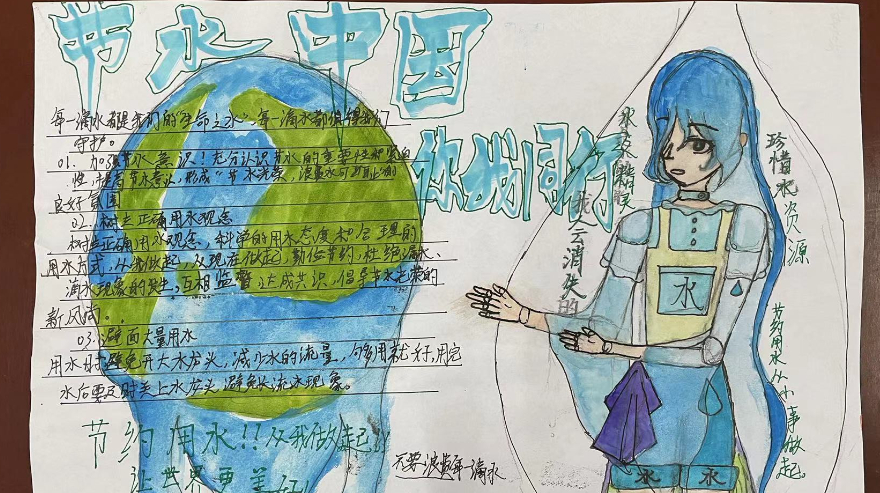 节水中国
你我同行
每一滴水都是我们的"生命之水",每一滴水都值得我们
守护。
01. 加强节水意识!充分认识节水的重要性和紧迫
性,提高节水意识,形成"节水光荣,浪费水可耻"的
良好氛围
02. 树立正确用水观念
树立正确用水观念,科学的用水态度和合理的
用水方式,从我做起,从现在做起,勤俭节约,杜绝漏水、
滴水现象的发生,互相监督达成共识,倡导节水光荣的
新风尚。
03.避面大量用水
用水时避免开大水龙头,减少水的流量,够用就好,用完
水后要及时关上水龙头,避免长流水现象。
节约用水!!从我做起!!
让世界更美好
不要浪费每一滴水
我会消失的
珍惜水资源
节约用水从小事做起。
水
水 水